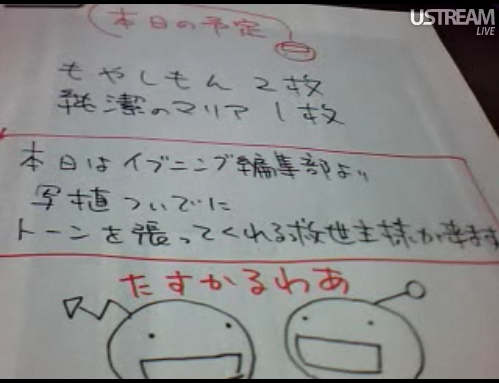 USTREAM
LIVE
本日の予定
もやしもん 2枚
純潔のマリア 1枚
本日はイブニング編集部より
写植ついでに
トーンを張ってくれる救世主様が来ます
たすかるわあ